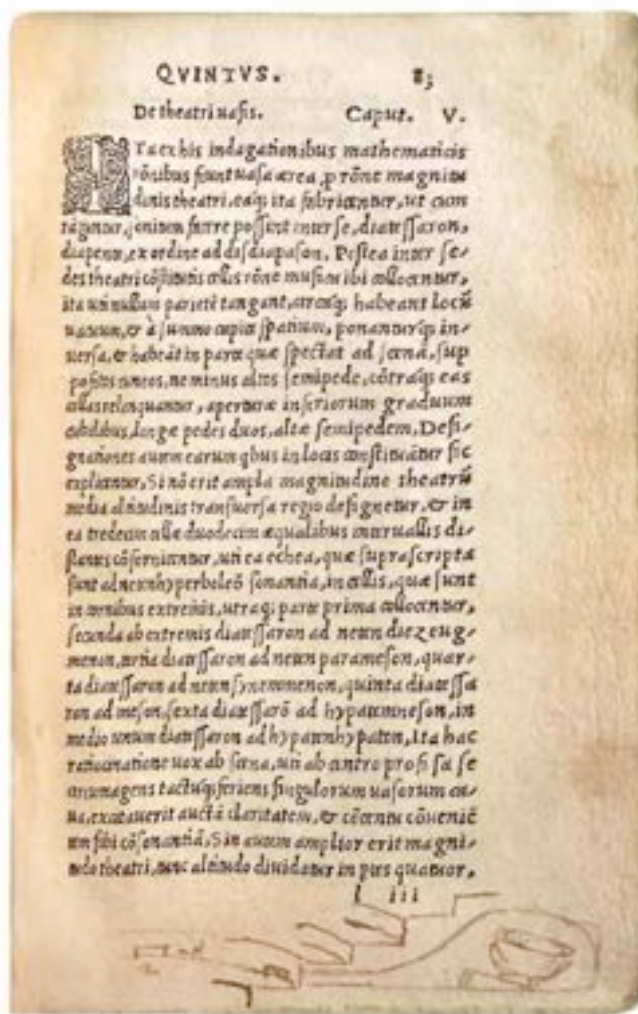 QVINTVS. 83
De theatri uasis. Caput. V.
ITa ex his indagationibus mathematicis
rōnibus fiunt uasa ærea, p rōne magnitu
dinis theatri, eaq; ita fabricentur, ut cum
tāguntur, sonitum facere possint inter se, diatessaron,
diapente, ex ordine ad disdiapason. Postea inter se-
des theatri cōstitutis cellis rōne musica ibi collocentur,
ita uti nullum parietē tangant, circaq; habeant locū
uacuum, & à summo capite spatium, ponanturq; in-
uersa, & habeāt in parte quæ spectat ad scenā, sup
positos cuneos, ne minus altos semipede, cōtraq; eas
cellas relinquantur, aperturæ inferiorum graduum
cubilibus, longæ pedes duos, altæ semipedem, Desi-
gnationes autem earum qbus in locis constituātur sic
explicentur, Si nō erit ampla magnitudine theatrū
media altitudinis transuersa regio designetur, & in
ea tredecim cellæ duodecim æqualibus interuallis di-
stantes cōfornicentur, uti ea echea, quæ suprascripta
sunt ad neten hyperboleō sonantia, in cellis, quæ sunt
in cornibus extremis, utraq; parte prima collocentur,
secunda ab extremis diatessaron ad neten diezeug-
menon, tertia diatessaron ad neten parameson, quar-
ta diatessaron ad neten synemmenon, quinta diatessa
ron ad meson, sexta diatessarō ad hypatemneson, in
medio unum diatessaron ad hypaten hypaton, Ita hac
ratiocinatione uox ab scena, uti ab centro profusa se
circumagens tactuq; feriens singulorum uasorum ca-
ua, excitauerit auctā claritatem, & cōcentu cōueniē
tem sibi cōsonantiā, Sin autem amplior erit magni-
tudo theatri, tunc altitudo diuidatur in ptes quatuor,
l iii